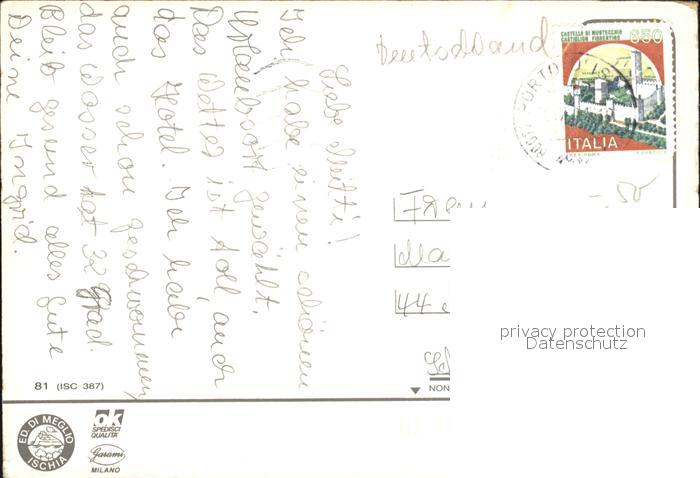 Liebe Mutti!
Ich habe einen schönen
Urlaubsort gewählt.
Das Wetter ist toll, auch
das Hotel. Ich habe
auch schon geschwommen,
das Wasser hat 32 Grad.
Bleib gesund alles Gute
Deine Ingrid.
Deutschland
CASTELLO DI MONTECCHIO
CASTIGLION FIORENTINO
650
ITALIA
PORTO
-.50
Frau
Ma
44
81 (ISC 387)
NON
ED. DI MEGLIO
ISCHIA
ok
SPEDISCI
QUALITÀ
Garami
MILANO
privacy protection
Datenschutz